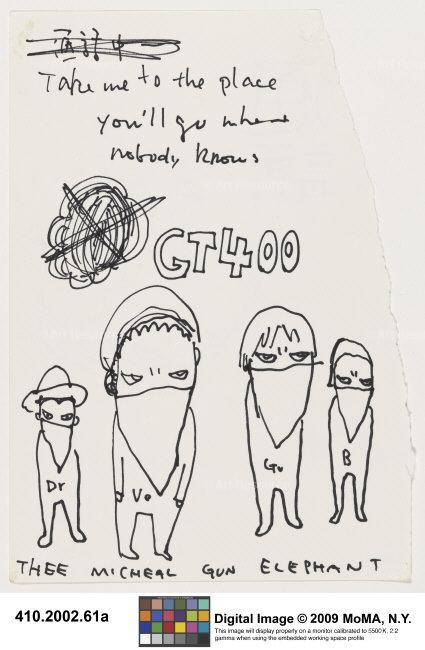 Take me to the place
you'll go where
nobody knows
GT400
Dr
Vo
Gu
B
THEE MICHEAL GUN ELEPHANT
410.2002.61a
Digital Image © 2009 MoMA, N.Y.
This image will display properly on a monitor calibrated to 5500K, 2.2
gamma when using the embedded working space profile